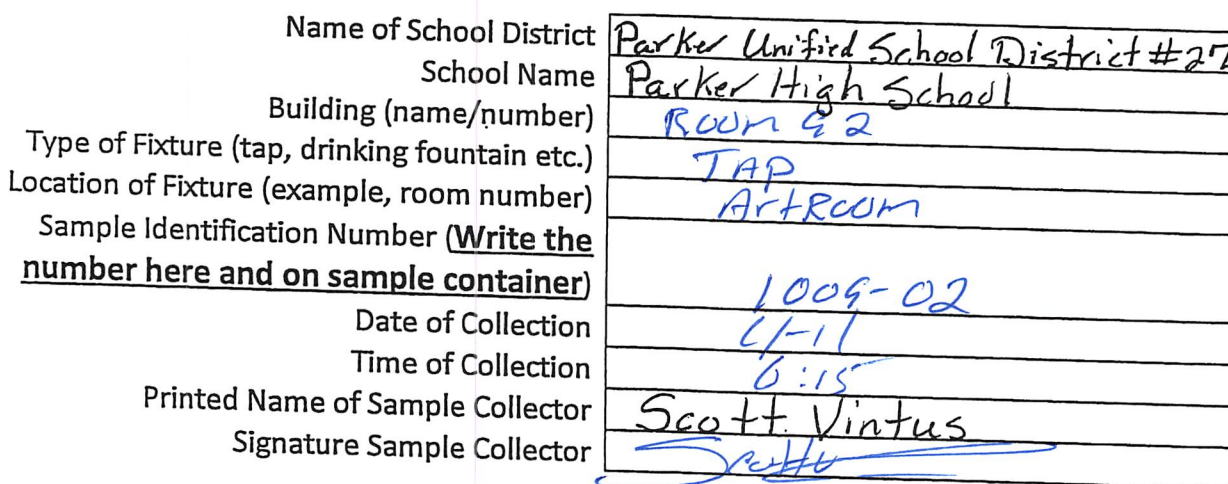 Name of School District Parker Unified School District #27
School Name Parker High School
Building (name/number) Room 92
Type of Fixture (tap, drinking fountain etc.) TAP
Location of Fixture (example, room number) ArtRoom
Sample Identification Number (Write the
number here and on sample container) 1009-02
Date of Collection
Time of Collection 6:15
Printed Name of Sample Collector Scott Vintus
Signature Sample Collector